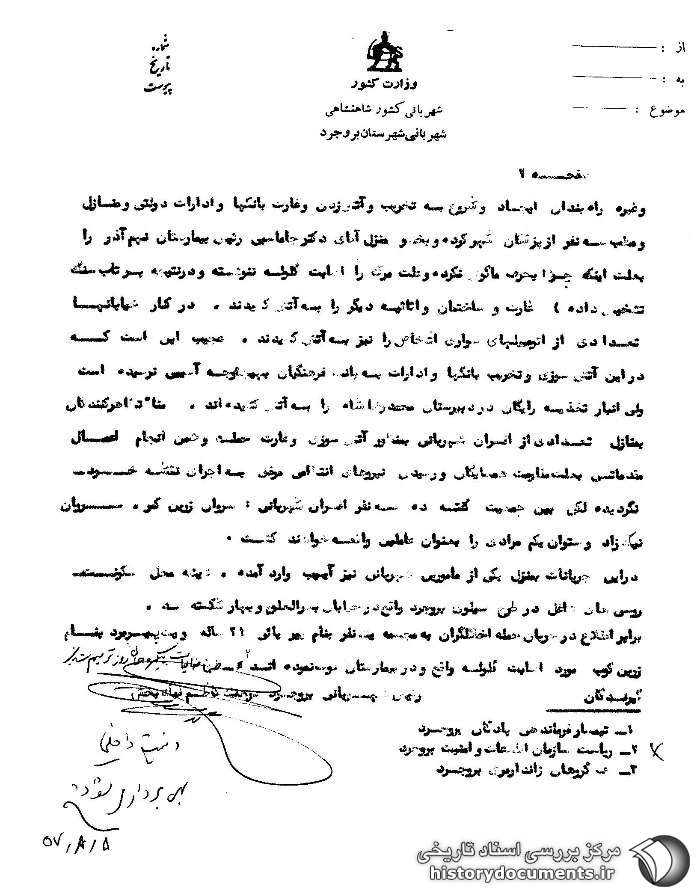 از :
به :
موضوع :
وزارت کشور
شهربانی کشور شاهنشاهی
شهربانی شهرستان بروجرد
شماره
تاریخ
پیوست
صفحه ۲
وغیره راه بندان ایجاد و شروع به تخریب وآتش زدن وغارت بانکها وادارات دولتی ومنازل
ومطب سه نفر از پزشکان شهر کرده و منزل آقای دکتر رئیس بیمارستان نهم آذر را
بعلت اینکه چرا وعلت مرگ را اصابت گلوله ننوشته ودرنتیجه پرتاب سنگ
تشخیص داده ) غارت و ساختمان واثاثیه دیگر را به آتش کشیدند . در کنار خیابانها
تعدادی از اتومبیلهای سواری اشخاص را نیز به آتش کشیدند . عجیب این است که
دراین آتش سوزی وتخریب بانکها وادارات به بانک فرهنگیان بهیچوجه آسیبی نرسیده است
ولی انبار تغذیه رایگان دردبیرستان محمدرضاشاه را به آتش کشیده اند . ضمنا تظاهرکنندگان
بمنازل تعدادی از افسران شهربانی بمنظور آتش سوزی وغارت حمله وضمن انجام اعمال
مقدماتی بعلت مقاومت همسایگان ورسیدن نیروهای انتظامی موفق به اجرای نقشه خود
نگردیده لکن بین جمعیت گفته شده سه نفر افسران شهربانی : سروان زرین کو سروان
نیک زاد وستوان یکم مرادی را بعنوان عاملین واقعه خواهند کشت .
دراین جریانات بمنزل یکی از مامورین شهربانی نیز آسیب وارد آمده . شیشه محل سکونت
روسی های شاغل در طرح سیلوی بروجرد واقع در خیابان بحرالعلوم و بهار شکسته شد .
برابر اطلاع در جریان حمله اخلالگران به مجسمه یک نفر بنام ۲۱ ساله و پیرمرد بنام
زرین کوب مورد اصابت گلوله واقع ودر بیمارستان فوت نموده اند
رئیس شهربانی بروجرد سرهنگ
گیرندگان
۱ــ تیمسار فرماندهی پادگان بروجرد
۲ــ ریاست سازمان اطلاعات و امنیت بروجرد
۳ــ گروهان ژاندارمری بروجرد
داخلی
بهره برداری شود
۵۷/۸/۵
مرکز بررسی اسناد تاریخی
historydocuments.ir